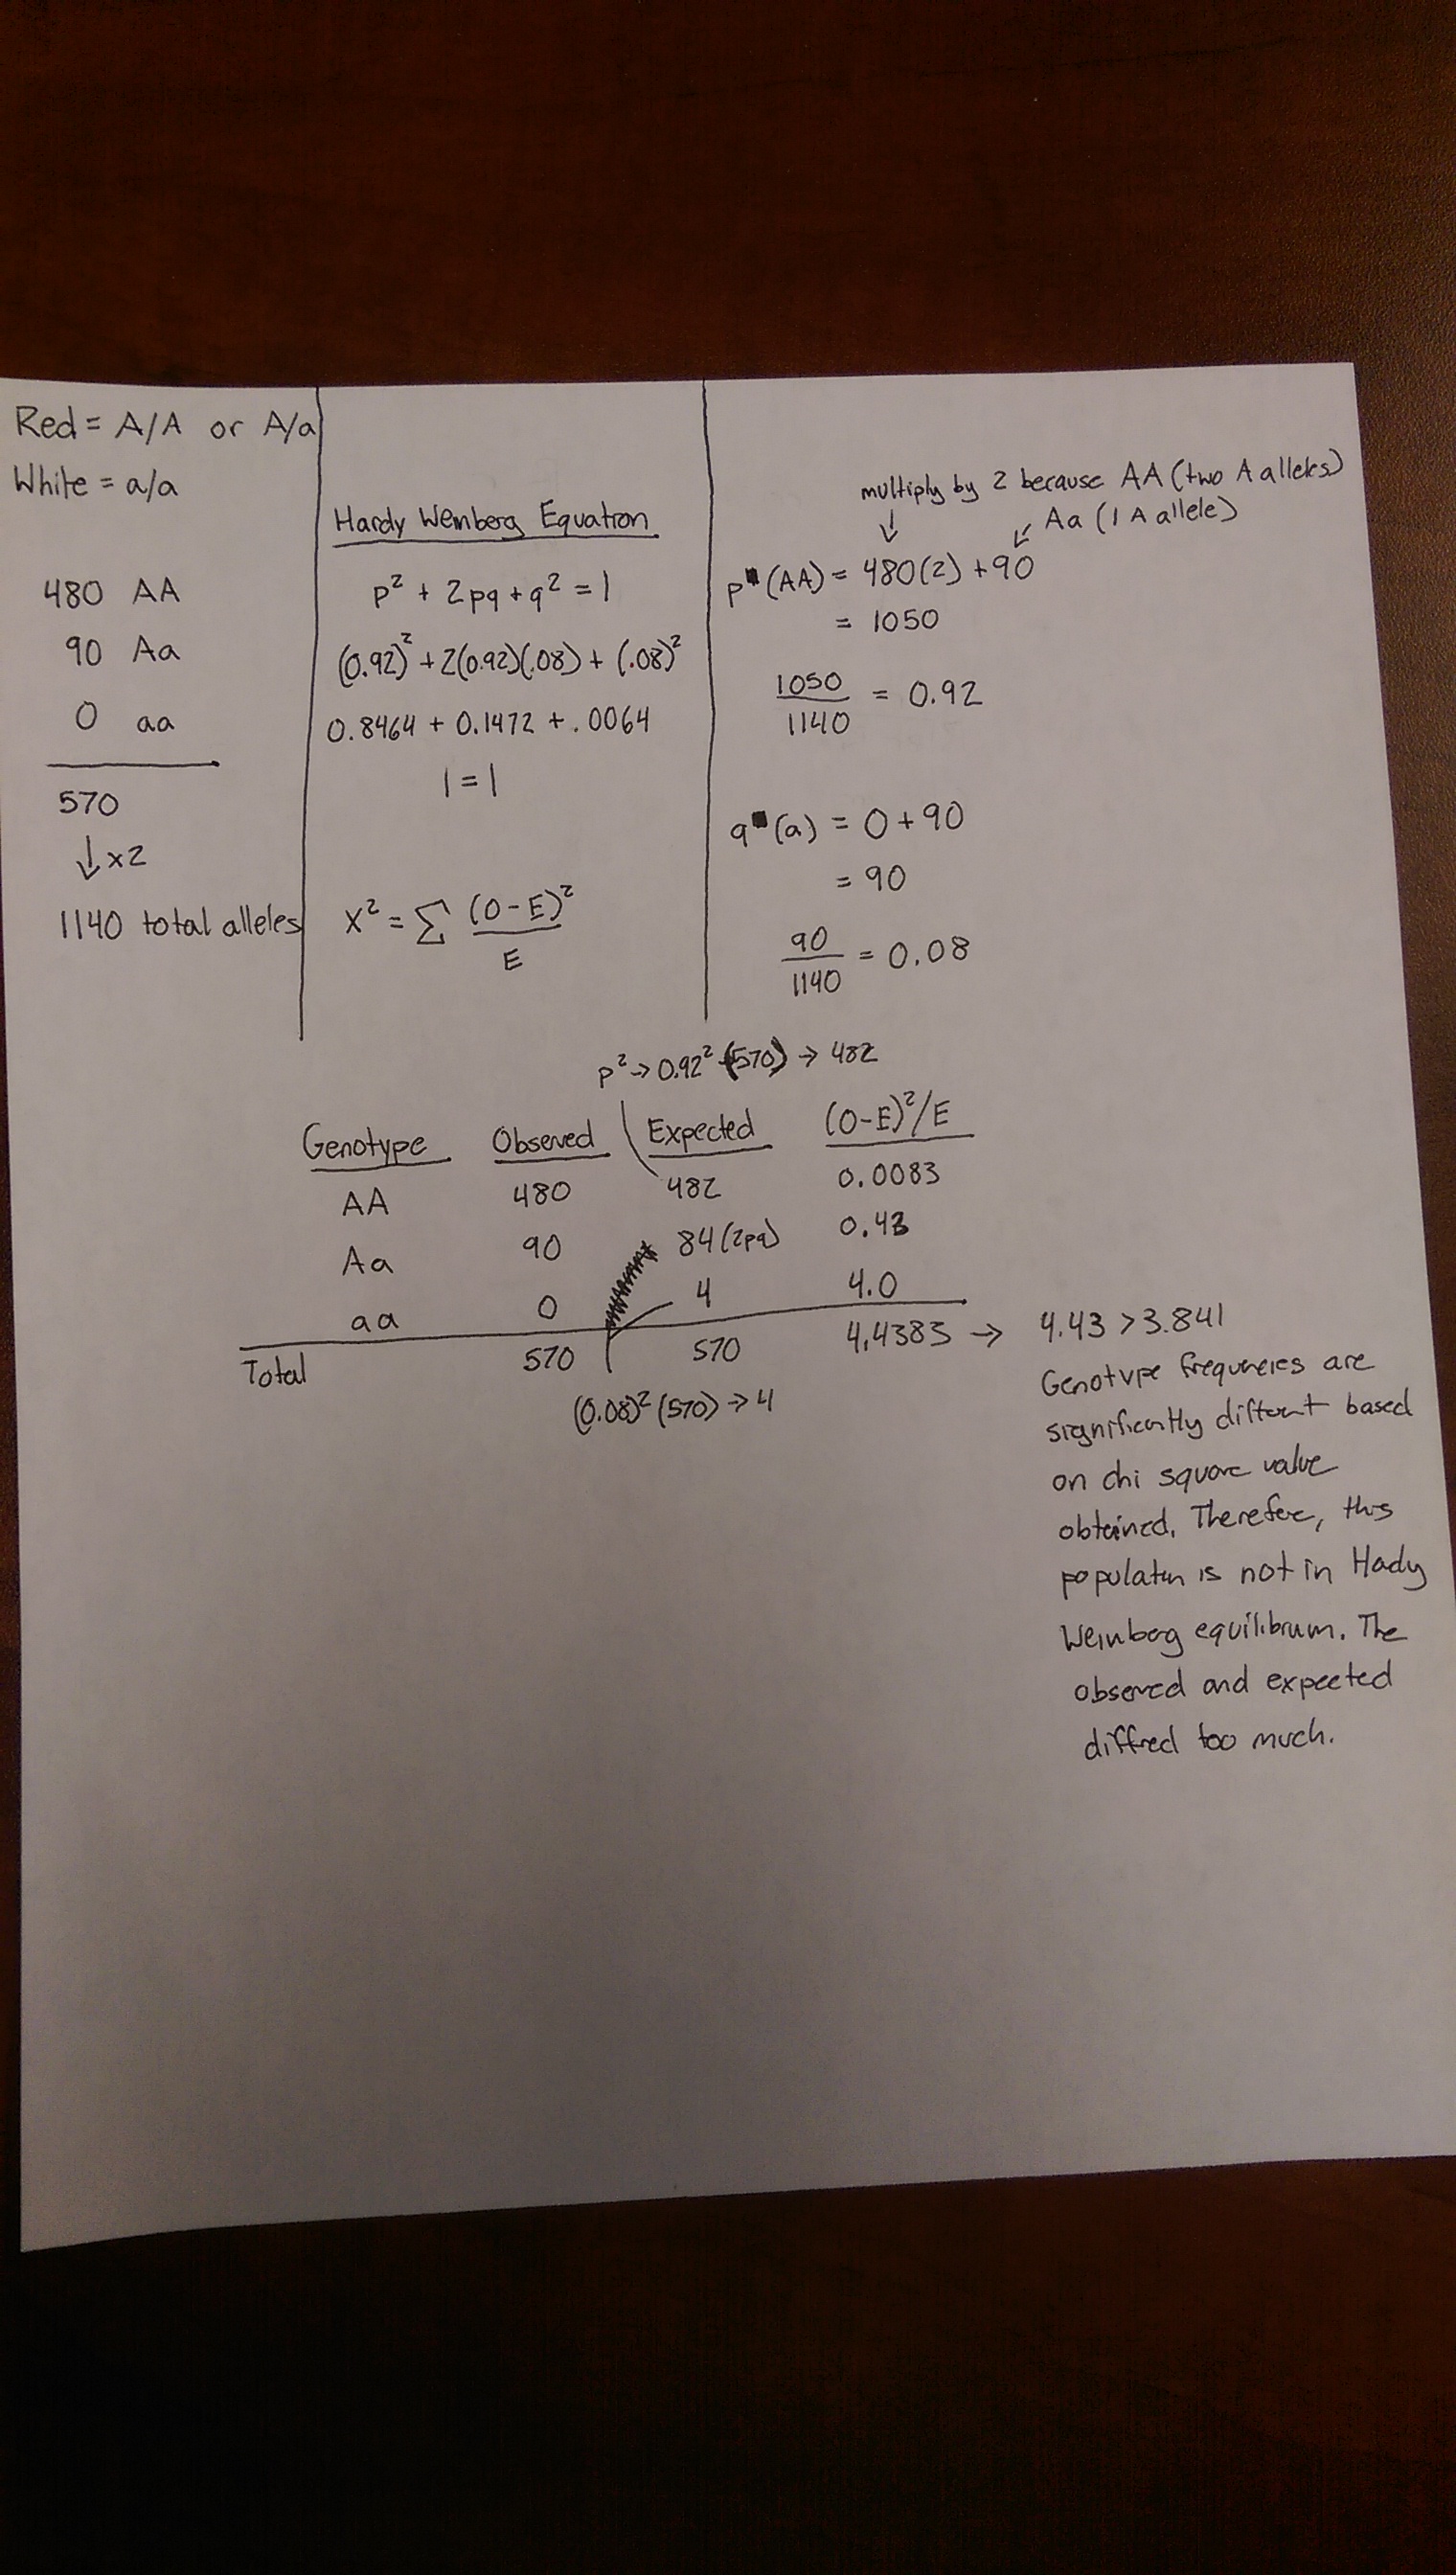 Red = A/A or A/a
White = a/a
480 AA
90 Aa
0 aa
570
↓ x2
1140 total alleles
Hardy Weinberg Equation
p² + 2pq + q² = 1
(0.92)² + 2(0.92)(.08) + (.08)²
0.8464 + 0.1472 + .0064
1 = 1
X² = Σ (O-E)²
E
multiply by 2 because AA (two A alleles)
↓ ↙ Aa (1 A allele)
p (AA) = 480(2) + 90
= 1050
1050
1140 = 0.92
q (a) = 0 + 90
= 90
90
1140 = 0.08
p² → 0.92² (570) → 482
Genotype Observed Expected (O-E)²/E
AA 480 482 0.0083
Aa 90 84 (2pq) 0.43
aa 0 4 4.0
Total 570 570 4.4383 → 4.43 > 3.841
(0.08)² (570) → 4
Genotype frequencies are
significantly different based
on chi square value
obtained. Therefore, this
population is not in Hardy
Weinberg equilibrium. The
observed and expected
differed too much.